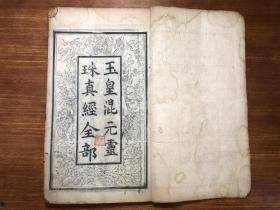 玉皇混元靈
珠真經全部